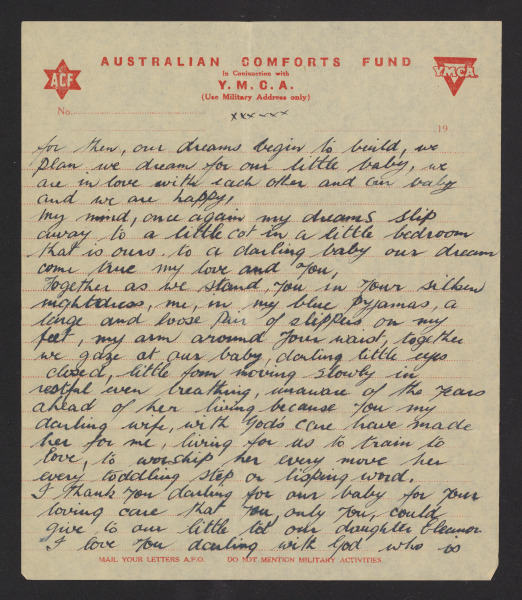 AUSTRALIAN COMFORTS FUND
In Conjunction with
Y. M. C. A.
(Use Military Address only)
ACF
YMCA
No.
19
xxx~xx
for then, our dreams begin to build, we
plan we dream for our little baby, we
are in love with each other and our baby
and we are happy,
my mind, once again my dreams slip
away to a little cot in a little bedroom
that is ours. to a darling baby our dream
come true my love and you,
Together as we stand, you in your silken
nightdress, me, in my blue pyjamas, a
large and loose pair of slippers on my
feet, my arm around your waist, together
we gaze at our baby, darling little eyes
closed, little form moving slowly in
restful even breathing, unaware of the years
ahead of her living because you my
darling wife, with God's care have made
her for me, living for us to train to
love, to worship her every move her
every toddling step or lisping word.
I thank you darling for our baby for your
loving care that you, only you, could
give to our little tot our daughter Eleanor
I love you darling with God who is
MAIL YOUR LETTERS A.F.O. DO NOT MENTION MILITARY ACTIVITIES